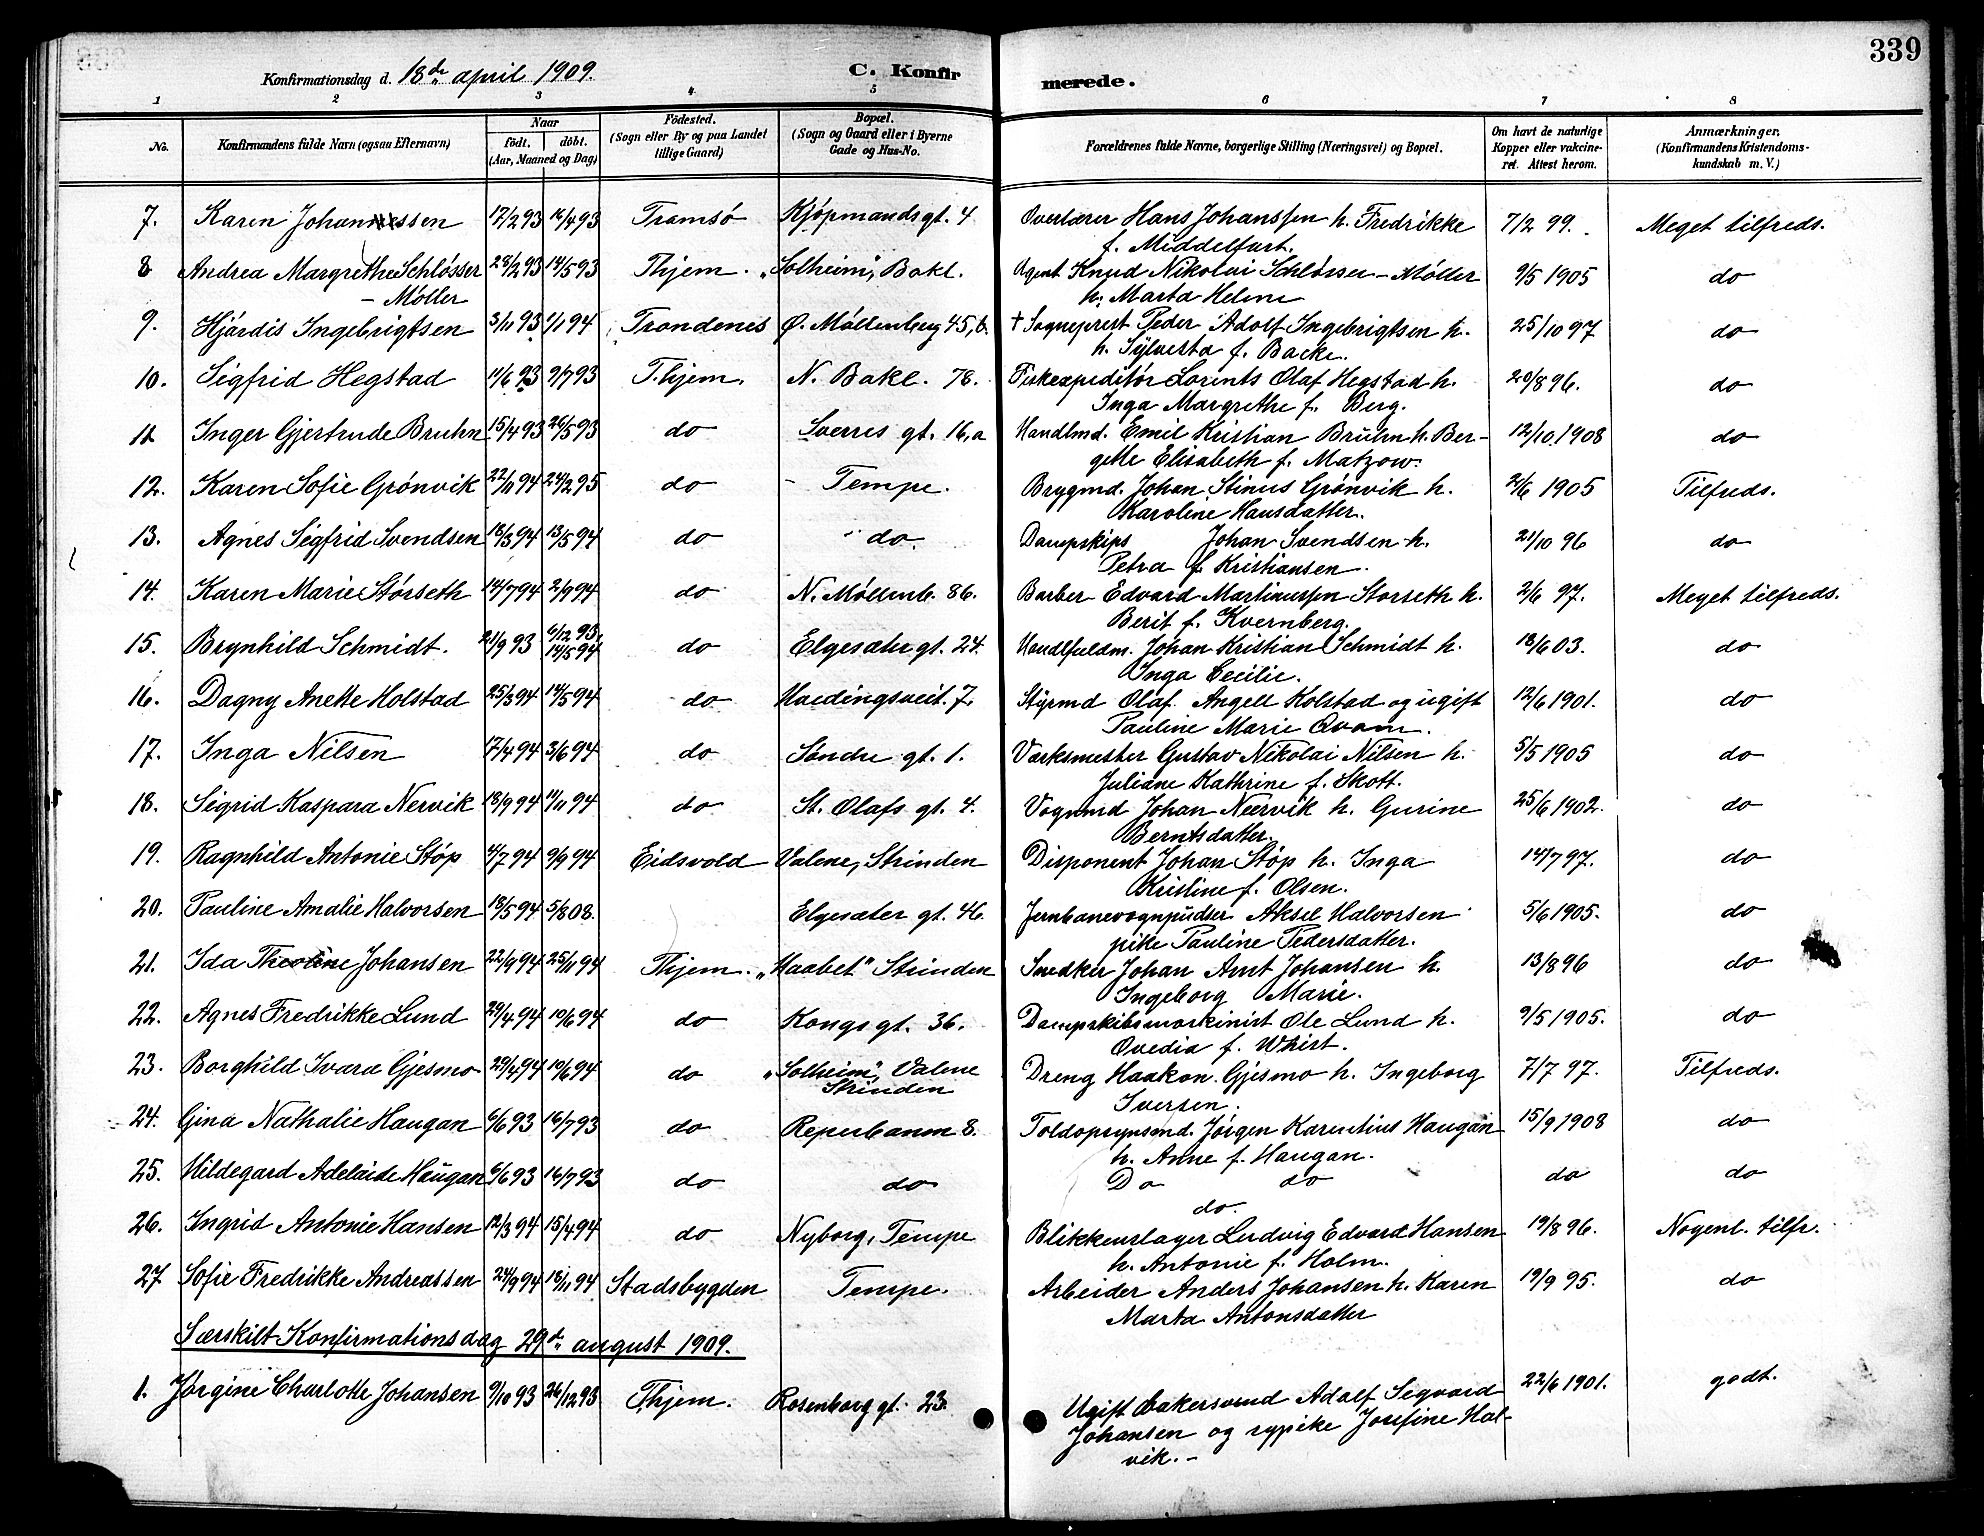 339
Konfirmationsdag d. 18de april 1909.
C. Konfir
merede.
1 2 3 4 5 6 7 8
No.
Konfirmandens fulde Navn (ogsaa Efternavn)
Naar
født. døbt.
(Aar, Maaned og Dag)
Fødested.
(Sogn eller By og paa Landet
tillige Gaard)
Bopæl.
(Sogn og Gaard eller i Byerne
Gade og Hus-No.
Forældrenes fulde Navne, borgerlige Stilling (Næringsvei) og Bopæl.
Om havt de naturlige
Kopper eller vakcine-
ret. Attest herom.
Anmærkninger.
(Konfirmandens Kristendoms-
kundskab m. V.)
7. Karen Johanssen 17/2 93 16/4 93 Tromsø Kjøpmandsgt. 4 Overlærer Hans Johanssen h. Fredrikke 7/2 99. Meget tilfreds.
f. Middelfart.
8 Andrea Margrethe Schløsser 28/2 93 14/5 93 Thjem. "Solheim", Bakl. Agent Knud Nikolai Schløsser-Møller 9/5 1905 do
- Møller h. Marta Helene
9. Hjørdis Ingebrigtsen 3/11 93 1/1 94 Trondenes Ø. Møllenberg 45,b. + Sogneprest Peder Adolf Ingebrigtsen h. 25/10 97 do
h. Sylvesta f. Backe.
10. Sigfrid Hegstad 11/6 93 9/7 93 T.hjem. N. Bakl. 78. Fiskexpeditør Lorents Olaf Hegstad h. 20/8 96. do
Inga Margrethe f. Berg.
11 Inger Gjertrude Bruhn 15/4 93 26/5 93 do Sverres gt. 16,a Handlmd. Emil Kristian Bruhn h. Ber- 12/10.1908 do
gette Elisabeth f. Matzow.
12. Karen Sofie Grønvik 22/11 94 24/2 95 do - Tempe. Brygmd. Johan Stinus Grønvik h. 2/6 1905 Tilfreds.
Karoline Hansdatter.
13. Agnes Sigfrid Svendsen 18/3 94 13/5 94 do do. Dampskips Johan Svendsen h. 21/10 96 do
Petra f. Kristiansen.
14. Karen Marie Størseth 14/7 94 2/9 94 do N. Møllenb. 86. Barber Edvard Martinussen Storseth h. 2/6 97. Meget tilfreds.
Berit f. Kvernberg.
15. Brynhild Schmidt. 21/9 93 6/12 93, do Elgesæter gt. 24. Handlfuldm. Johan Kristian Schmidt h. 18/6 03. do
14/5 94 Inga Cecilie.
16. Dagny Anette Holstad 25/3 94 14/5 94 do Haedingsveit. 7. Styrmd Olaf Angell Kolstad og ugift 12/6 1901. do
Pauline Marie Qvam.
17. Inga Nilsen 17/4 94 3/6 94 do Søndre gt. 1. Værksmester Gustav Nikolai Nilsen h. 5/5 1905 do
Juliane Kathrine f. Skott.
18. Sigrid Kaspara Nervik 18/9 94 11/11 94 do St. Olafs gt. 4. Vognmd Johan Neervik h. Gurine 25/6 1902. do
Berntsdatter.
19. Ragnhild Antonie Støp 4/7 94 9/9 94 Eidsvold Valene, Strinden Disponent Johan Støp h. Inga 14/7 97. do
Kristine f. Olsen.
20. Pauline Amalie Halvorsen 18/5 94 5/8 08. Elgesæter gt. 46. Jernbanevognpudser Aksel Halvorsen 5/6 1905. do
pike Pauline Pedersdatter.
21. Ida Theoline Johansen 22/9 94 25/11 94 Thjem. "Haabet" Strinden Snedker Johan Arnt Johansen h. 13/8 96 do
Ingeborg Marie.
22. Agnes Fredrikke Lund 29/4 94 10/6 94 do Kongs gt. 36. Dampskibsmaskinist Ole Lund h. 9/5 1905. do
Ovedia f. Whist.
23. Borghild Ivara Gjesmo 29/4 94 10/6 94 do "Solheim", Valene Dreng Haakon Gjesmo h. Ingeborg 7/7 97. Tilfreds.
Strinden Iversen.
24. Gina Nathalie Haugan 6/6 93 16/7 93 do Reperbanen 8. Toldopsynsmd. Jørgen Karentius Haugan 15/9 1908 do
h. Anne f. Haugan.
25. Hildegard Adelaide Haugan 6/6 93 16/7 93 do do Do do do do
do.
26. Ingrid Antonie Hansen 12/3 94 15/4 94 do Nyborg, Tempe Blikkenslager Ludvig Edvard Hansen 19/8 96. Nogenl. tilfr.
h. Antonie f. Holm.
27 Sofie Fredrikke Andreassen 24/9 94 18/11 94 Stadsbygden Tempe. Arbeider Anders Johansen h. Karen 19/9 95. do
Marta Antonsdatter
Særskilt Konfirmationsdag 29de august 1909.
1. Jørgine Charlotte Johansen 9/10 93 26/12 93 Thjem. Rosenborg gt. 23. Ugift bakersvend Adolf Segvard 22/6 1901. godt.
Johansen og sypike Josefine Hal-
vik. -